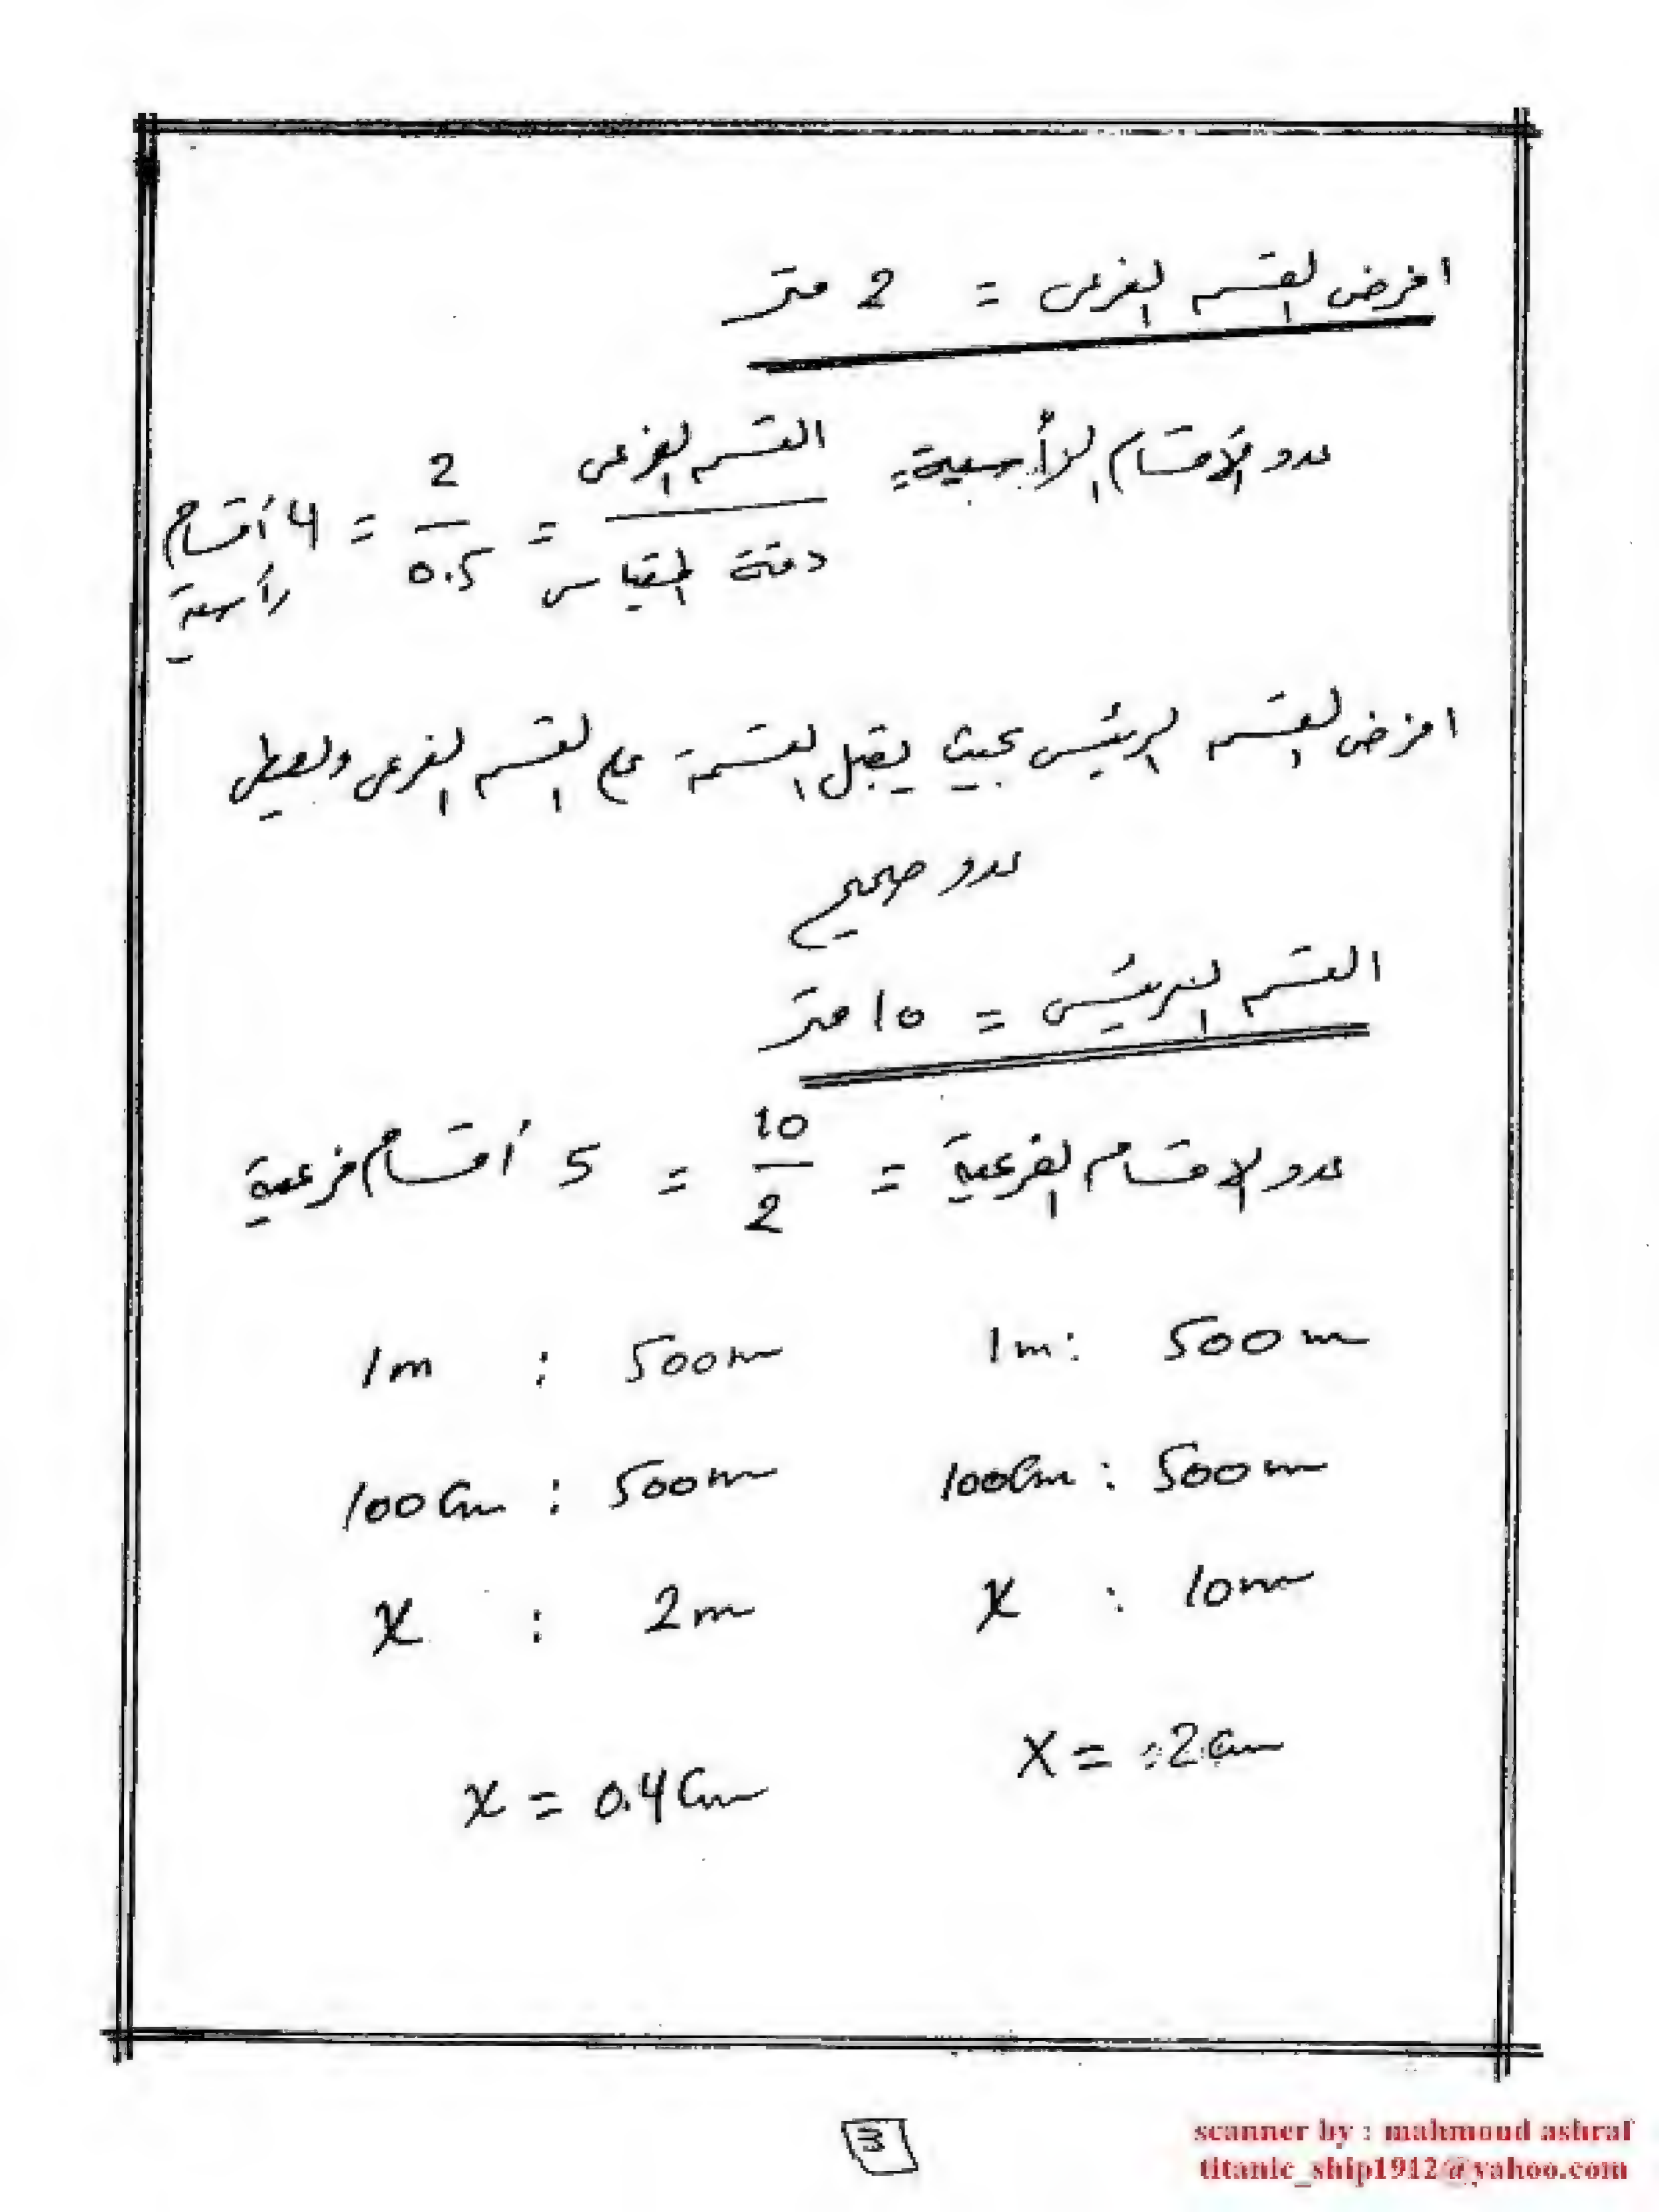 افرض القسم الفرعى = 2 متر
عدد الأقسام الرأسية = القسم الفرعى / دقة المقياس = 2 / 0.5 = 4 أقسام رأسية
افرض القسم الرئيسى بحيث يقبل القسمة على القسم الفرعى ويعطى
عدد صحيح
القسم الرئيسى = 10 متر
عدد الاقسام الفرعية = 10 / 2 = 5 أقسام فرعية
1m : 500m 1m : 500m
100Cm : 500m 100Cm : 500m
x : 2m x : 10m
x = 0.4Cm x = 2Cm
3
scanner by : mahmoud ashraf
titanic_ship1912@yahoo.com